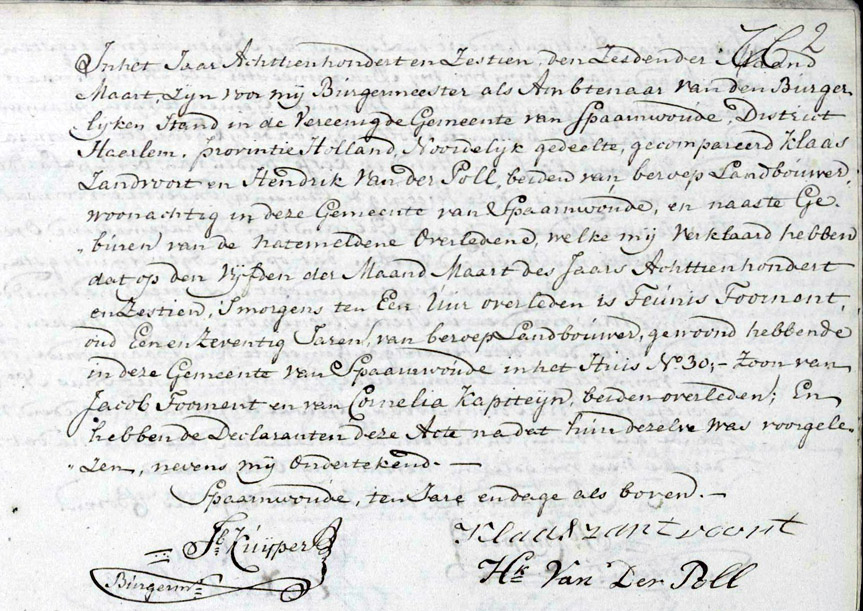 N.o 2
In het Jaar Achttienhonderd en Zestien, den Zesden der Maand
Maart, Zyn voor my Burgermeester als Ambtenaar van den Burger
lyken Stand in de Vereenigde Gemeente van Spaarnwoude, District
Haerlem, Provintie Holland, Noordelyk gedeelte, gecompareerd Klaas
Zandvoort en Hendrik Van der Poll, beiden van beroep Landbouwer,
woonachtig in deze Gemeente van Spaarnwoude, en naaste Ge„
„buren van de natemeldene Overledene, welke my Verklaard hebben
dat op den Vyfden der Maand Maart des Jaars Achttienhondert
en Zestien, S'morgens ten Een Uur overleden is Teunis Toornont,
oud Een en Zeventig Jaren, van beroep Landbouwer, gewoond hebbende
in deze Gemeente van Spaarnwoude in het Huis No. 30,- Zoon van
Jacob Toornent en van Cornelia Kaptteyn, beiden overleden; En
hebben de Declaranten deze Acte na dat hun dezelve was voorgele„
„zen, nevens my Ondertekend. —
Spaarnwoude, ten Jare en dage als boven. —
Jb. Kuyper
Burgermr.
Klaas zantvoort
Hk Van Der Poll